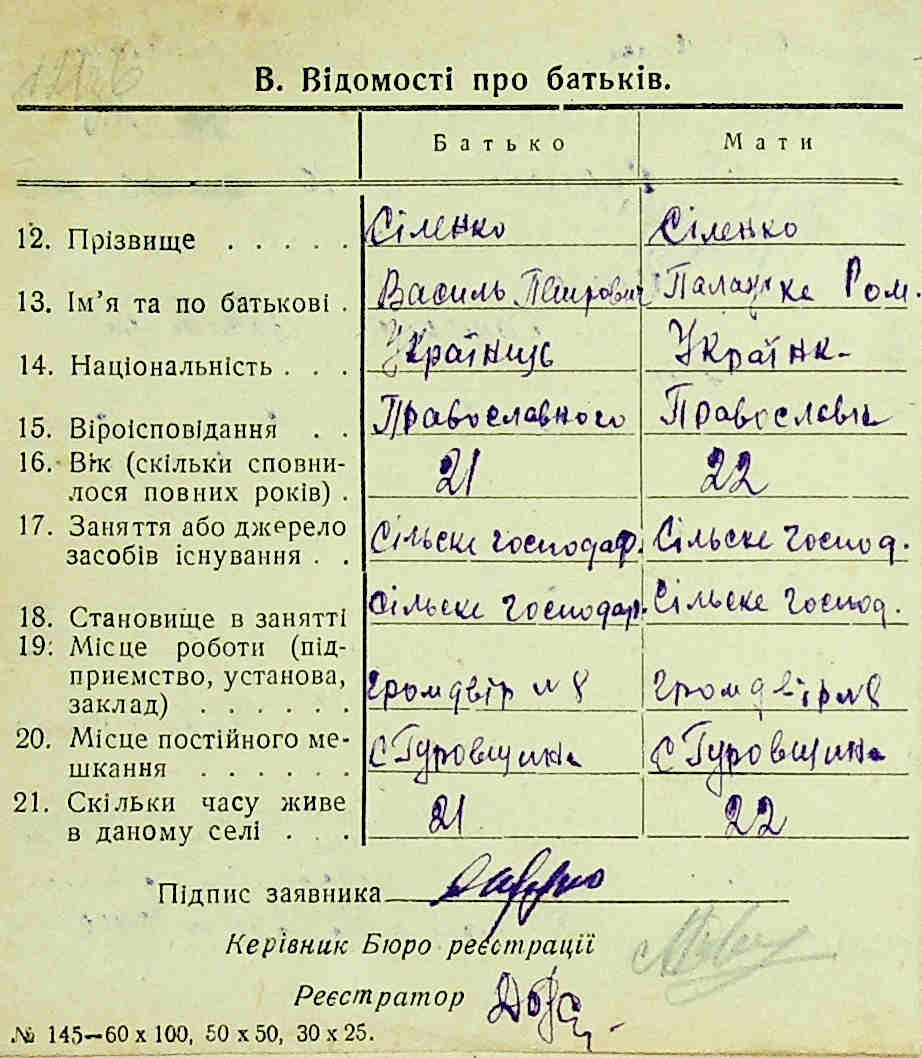 В. Відомості про батьків.
Батько Мати
12. Прізвище . . . . . Сіленко Сіленко
13. Ім'я та по батькові . Василь Петрович Палажка Ром.
14. Національність . . . Українець Українк-
15. Віроісповідання . . Православного Православна
16. Вік (скільки сповни-
лося повних років) . 21 22
17. Заняття або джерело
засобів існування . . Сільске господар. Сільске господ.
18. Становище в занятті Сільске господар. Сільске господ.
19. Місце роботи (під-
приємство, установа,
заклад) . . . . . . громдвір №8 громдвір №8
20. Місце постійного ме-
шкання . . . . . . с Гуровщина с Гуровщина
21. Скільки часу живе
в даному селі . . . 21 22
Підпис заявника
Керівник Бюро реєстрації
Реєстратор
№ 145—60 х 100, 50 х 50, 30 х 25.